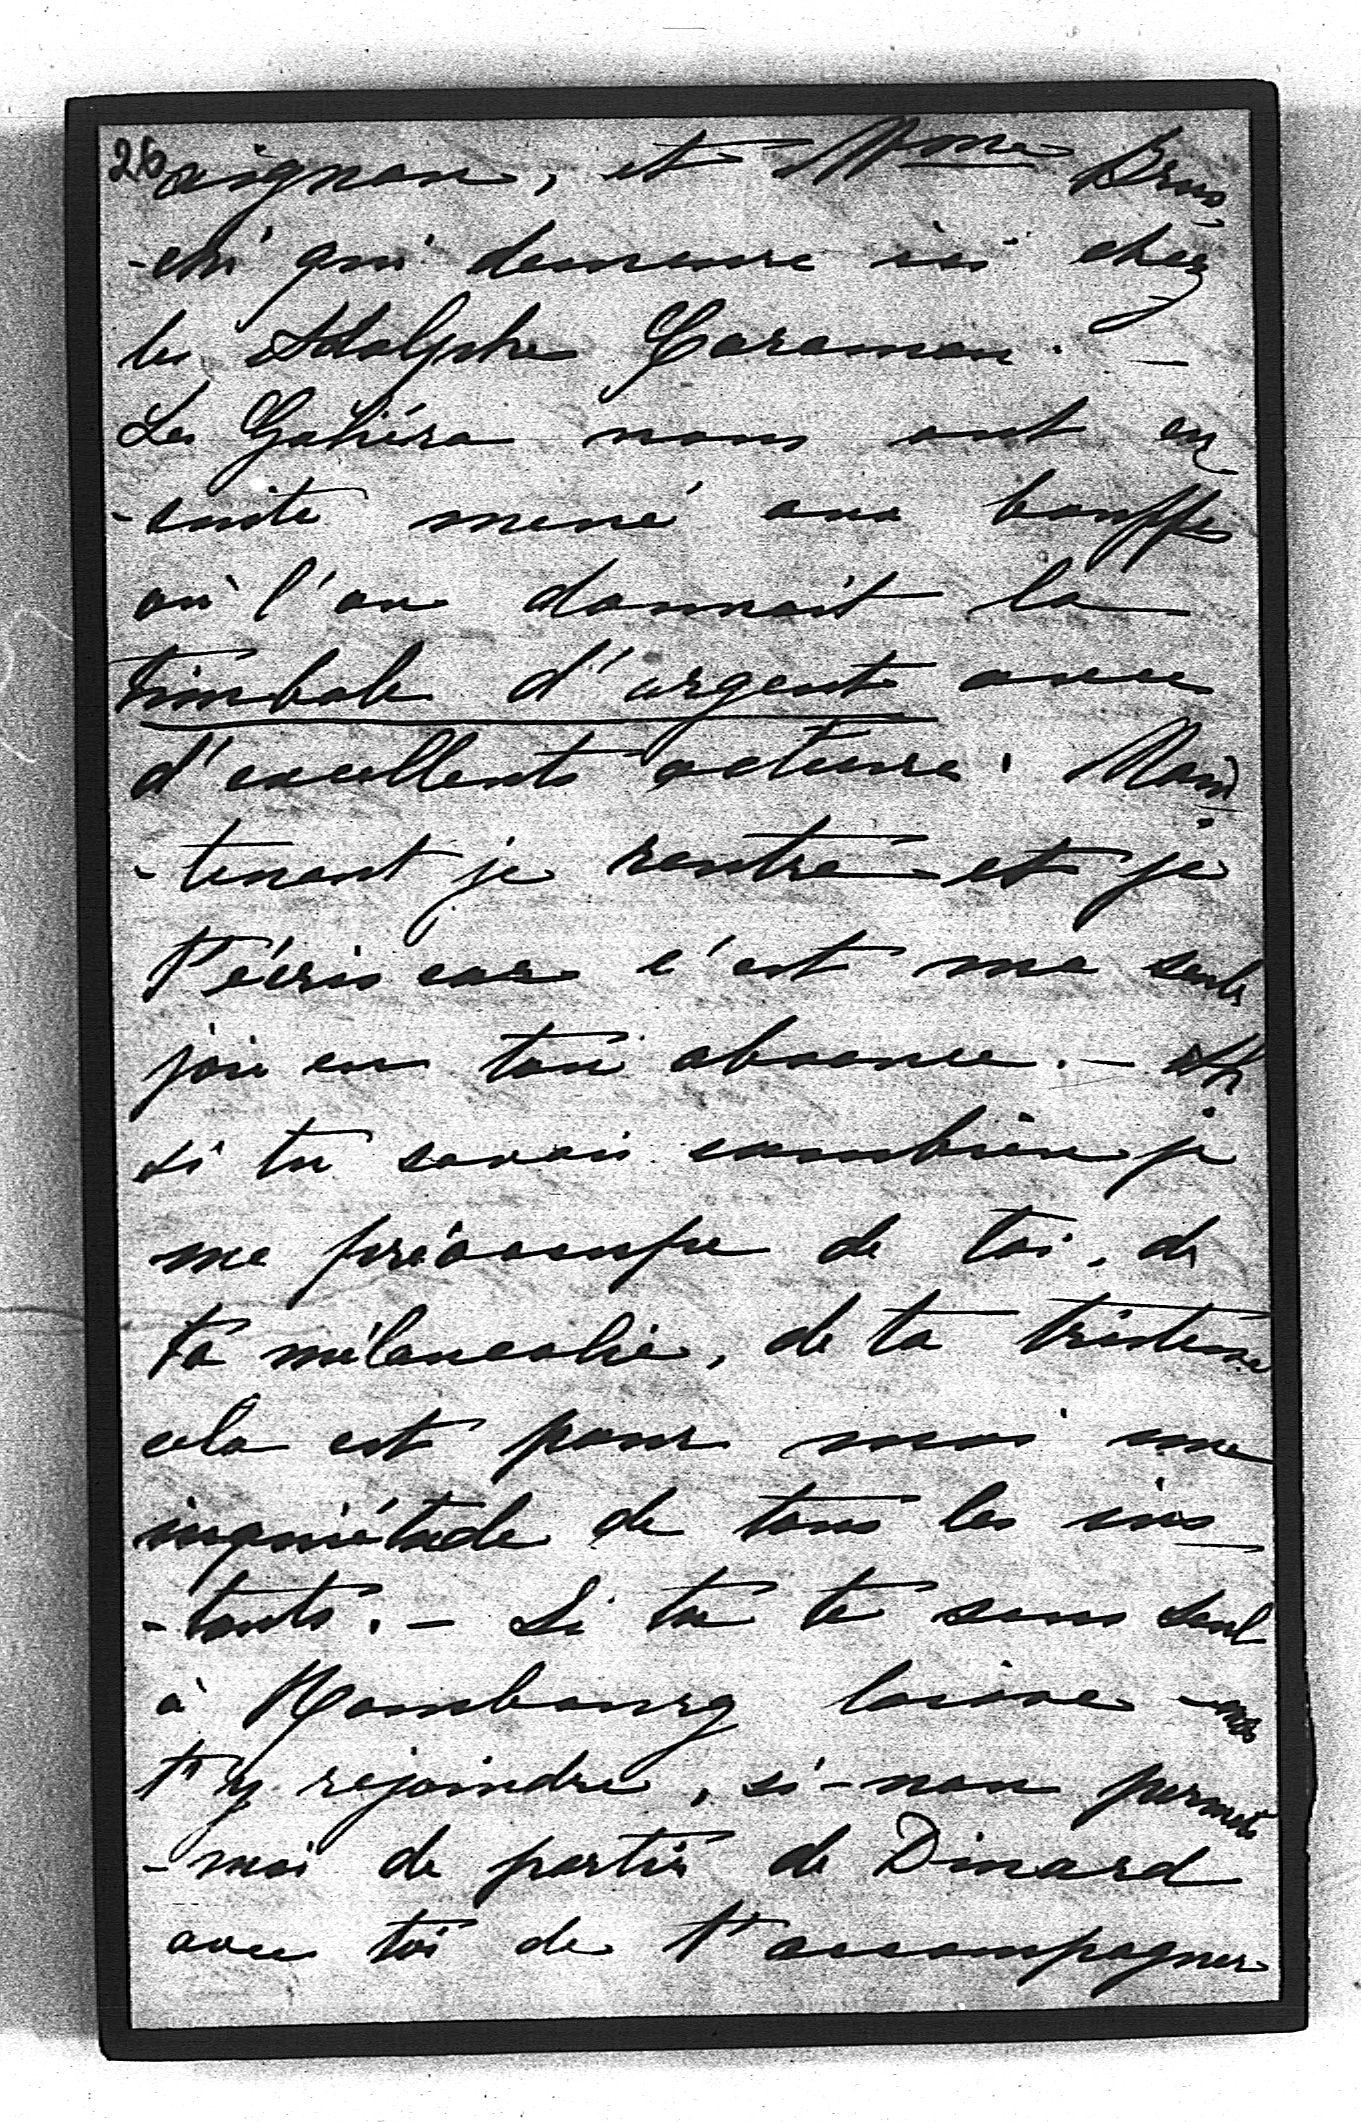 26
aignan, et Mme Brus
-chi qui demeure ici chez
les Adolphe Caraman. —
Les Galiéra nous ont en
-suite mené aux bouffes
où l'on donnait la
timbale d'argent avec
d'excellents acteurs. Main
-tenant je rentre et je
t'écris car c'est ma seule
joie en ton absence. — Ah
si tu savais combien je
me préoccupe de toi, de
ta mélancolie, de ta tristesse
cela est pour moi une
inquiétude de tous les ins
-tants. — Si tu te sens seul
à Hombourg laisse-moi
t'y rejoindre, si-non permets
-moi de partir de Dinard
avec toi de t'accompagner